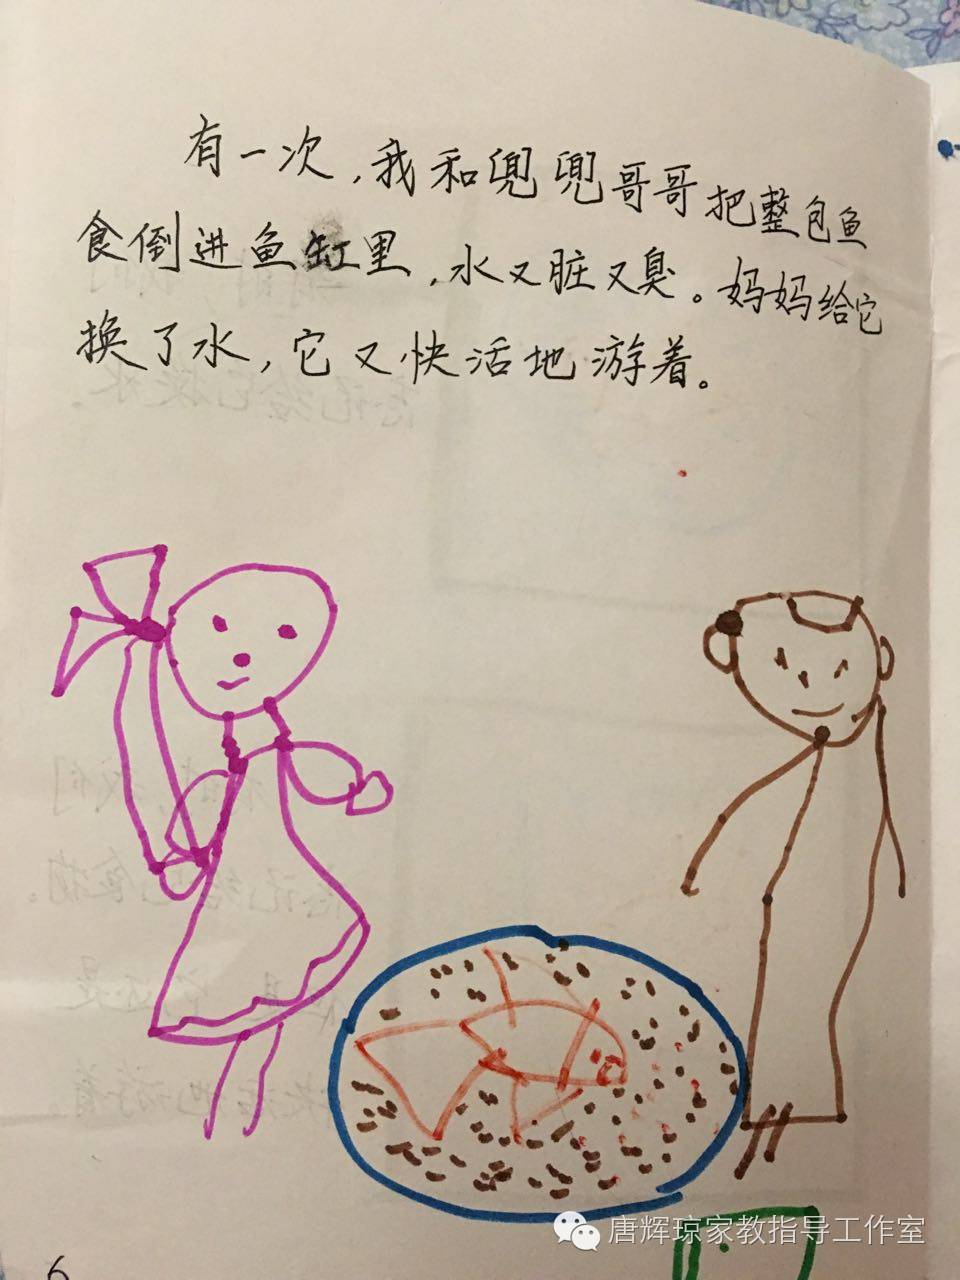 有一次，我和兜兜哥哥把整包鱼
食倒进鱼缸里，水又脏又臭。妈妈给它
换了水，它又快活地游着。
唐辉琼家教指导工作室
6